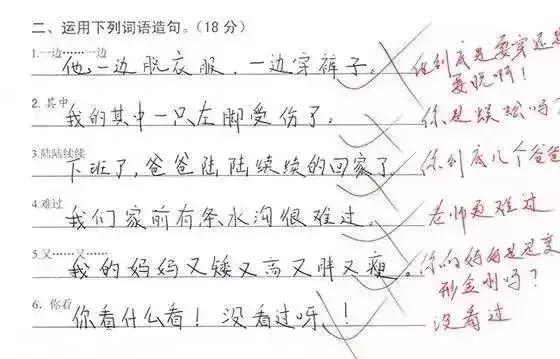 二、运用下列词语造句。（18 分）
1.一边……一边
他一边脱衣服，一边穿裤子。
他到底是要穿还是
要脱啊！
2. 其中
我的其中一只左脚受伤了。
你是蜈蚣吗？
3.陆陆续续
下班了，爸爸陆陆续续的回家了。
你到底几个爸爸
4.难过
我们家前有条水沟很难过。
老师更难过
5.又……又……
我的妈妈又矮又高又胖又瘦。
你的妈妈是变
形金刚吗？
6．你看
你看什么看！没看过呀！！
没看过